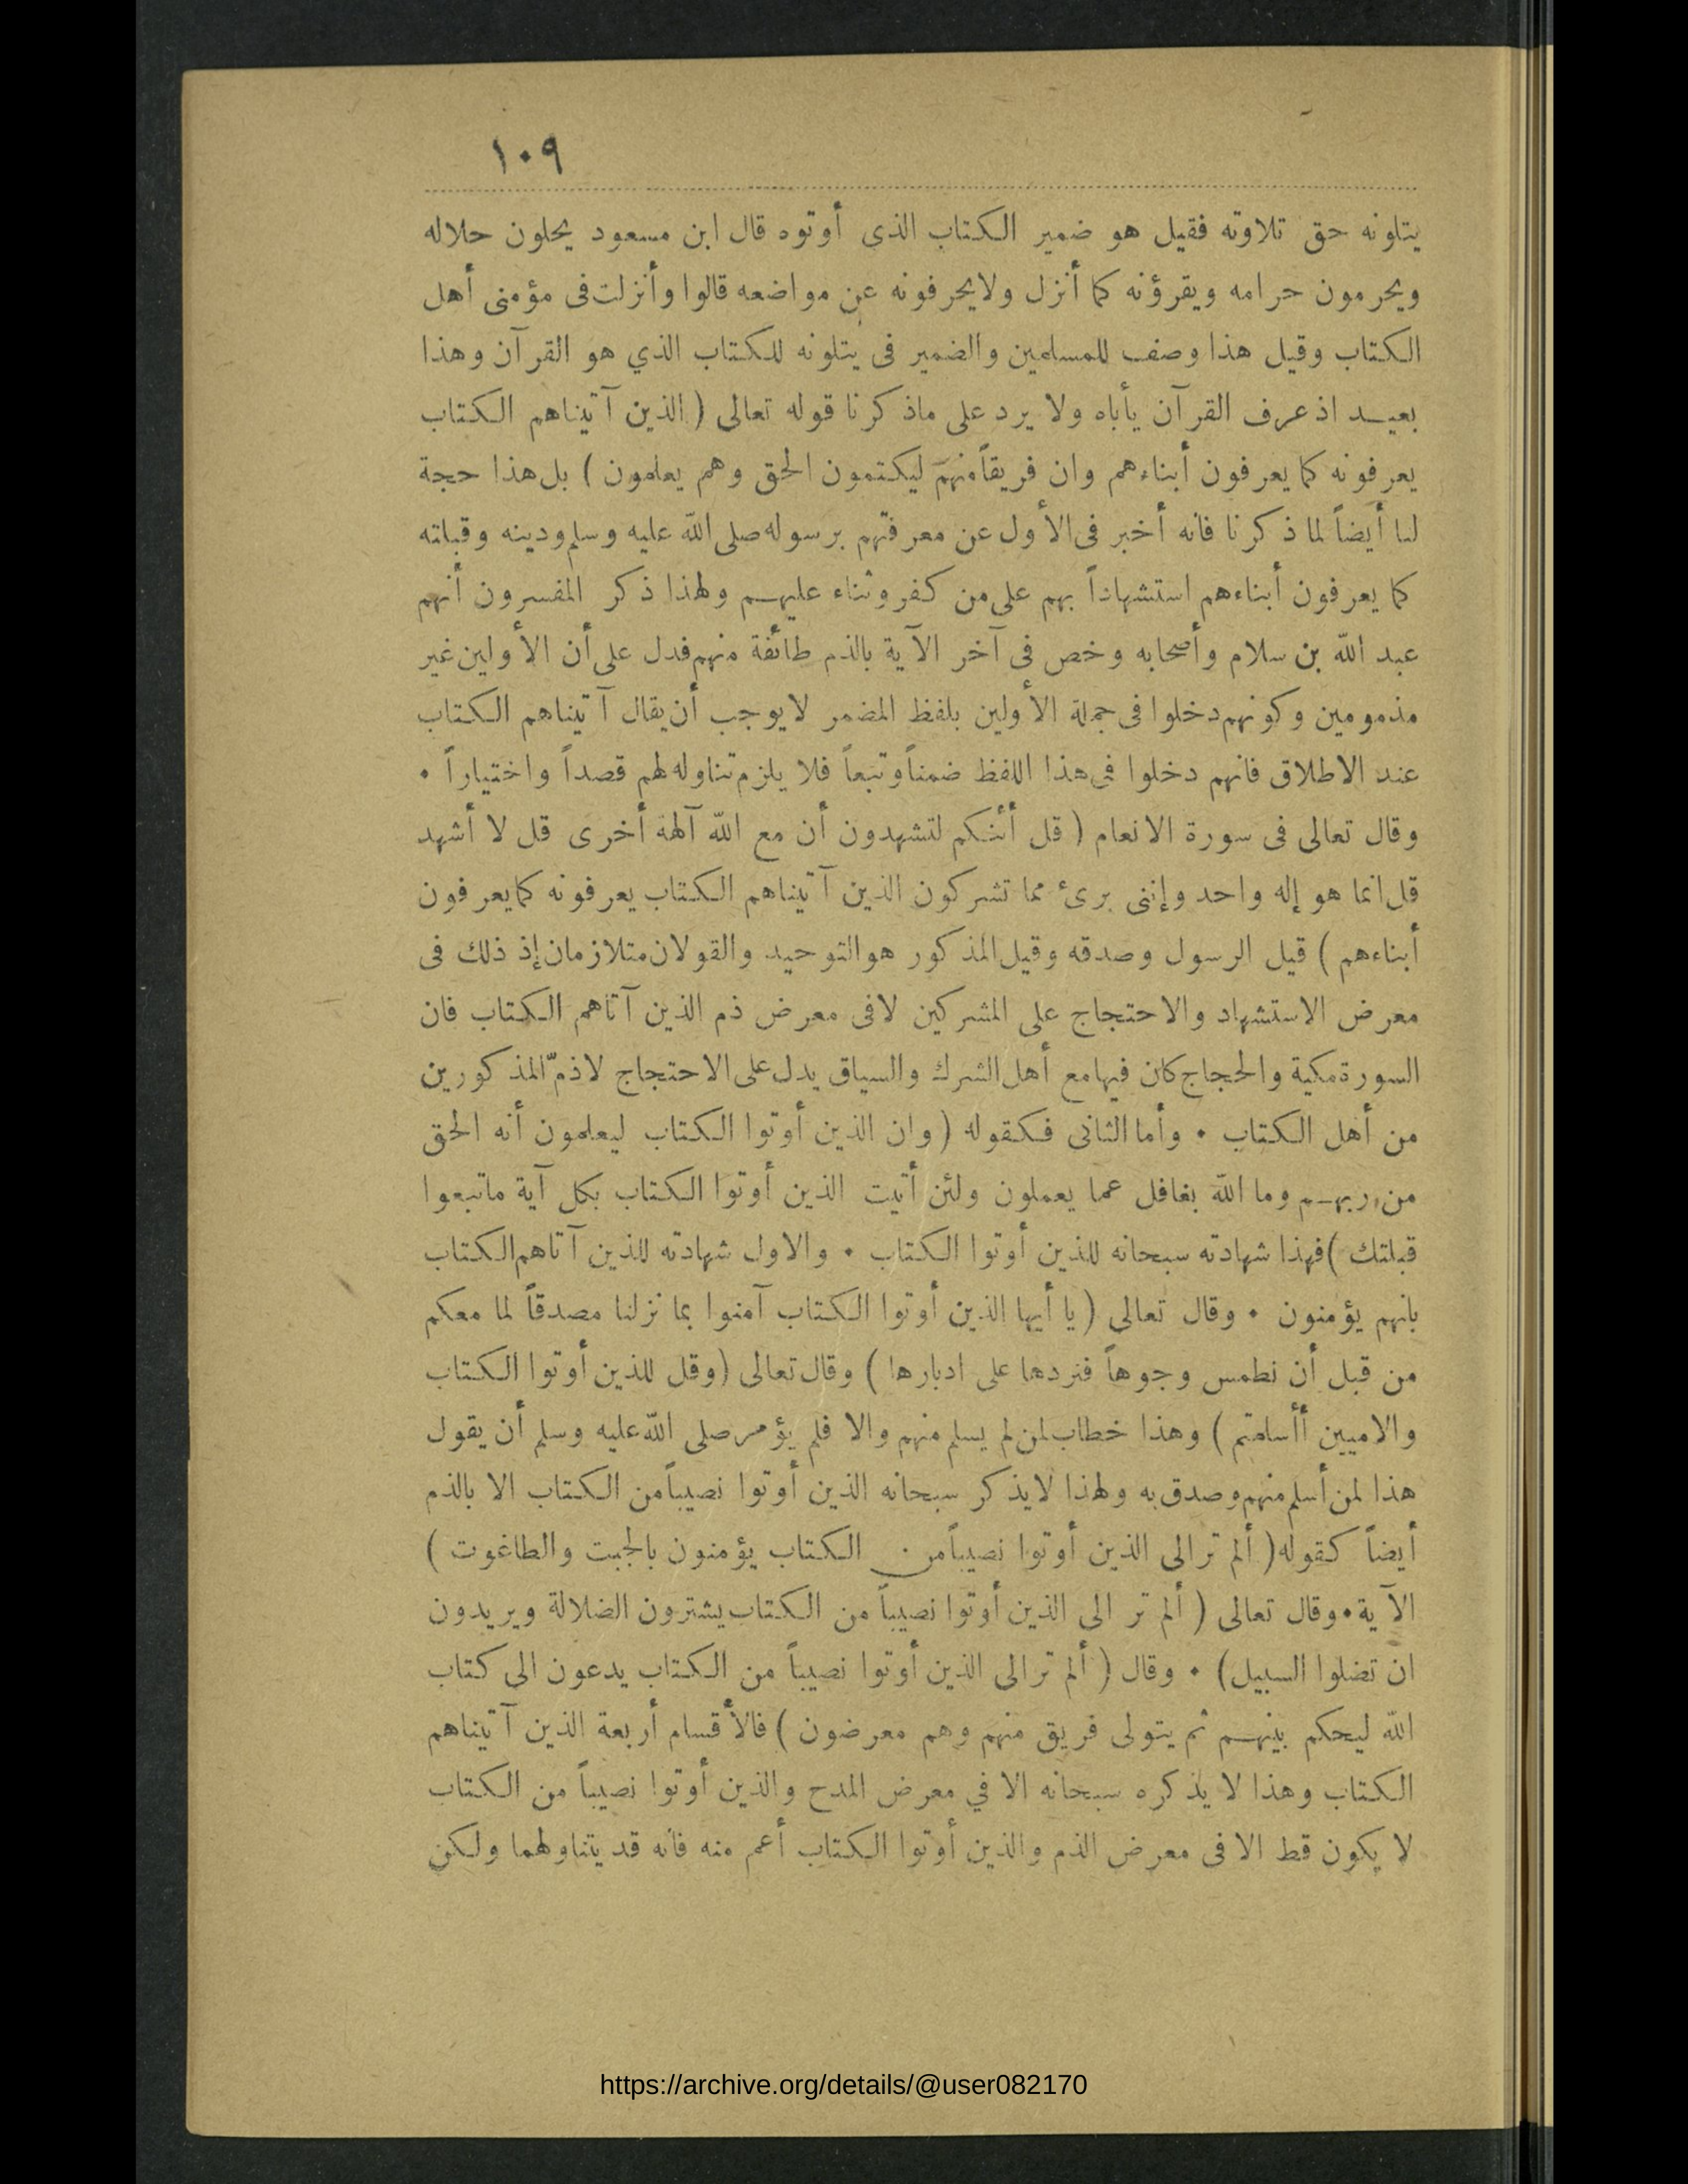 ١٠٩
يتلونه حق تلاوته فقيل هو ضمير الكتاب الذى أوتوه قال ابن مسعود يحلون حلاله
ويحرمون حرامه ويقرؤنه كما أنزل ولا يحرفونه عن مواضعه قالوا وأنزلت فى مؤمنى أهل
الكتاب وقيل هذا وصف للمسلمين والضمير فى يتلونه للكتاب الذي هو القرآن وهذا
بعيد اذ عرف القرآن يأباه ولا يرد على ماذكرنا قوله تعالى ( الذين آتيناهم الكتاب
يعرفونه كما يعرفون أبناءهم وان فريقاً منهم ليكتمون الحق وهم يعلمون ) بل هذا حجة
لنا أيضاً لما ذكرنا فانه أخبر فى الأول عن معرفتهم برسوله صلى الله عليه وسلم ودينه وقبلته
كما يعرفون أبناءهم استشهاداً بهم على من كفر وثناء عليهم ولهذا ذكر المفسرون أنهم
عبد الله بن سلام وأصحابه وخص فى آخر الآية بالذم طائفة منهم فدل على أن الأولين غير
مذمومين وكونهم دخلوا فى جملة الأولين بلفظ المضمر لا يوجب أن يقال آتيناهم الكتاب
عند الاطلاق فانهم دخلوا فى هذا اللفظ ضمناً وتبعاً فلا يلزم تناوله لهم قصداً واختياراً •
وقال تعالى فى سورة الانعام ( قل أئنكم لتشهدون أن مع الله آلهة أخرى قل لا أشهد
قل انما هو إله واحد وإننى برىء مما تشركون الذين آتيناهم الكتاب يعرفونه كما يعرفون
أبناءهم ) قيل الرسول وصدقه وقيل المذكور هو التوحيد والقولان متلازمان إذ ذلك فى
معرض الاستشهاد والاحتجاج على المشركين لا فى معرض ذم الذين آتاهم الكتاب فان
السورة مكية والحجاج كان فيها مع أهل الشرك والسياق يدل على الاحتجاج لا ذمّ المذكورين
من أهل الكتاب • وأما الثانى فكقوله ( وان الذين أوتوا الكتاب ليعلمون أنه الحق
من ربهم وما الله بغافل عما يعملون ولئن أتيت الذين أوتوا الكتاب بكل آية ماتبعوا
قبلتك ) فهذا شهادته سبحانه للذين أوتوا الكتاب • والاول شهادته للذين آتاهم الكتاب
بانهم يؤمنون • وقال تعالى ( يا أيها الذين أوتوا الكتاب آمنوا بما نزلنا مصدقاً لما معكم
من قبل أن نطمس وجوهاً فنردها على ادبارها ) وقال تعالى ( وقل للذين أوتوا الكتاب
والاميين أأسلمتم ) وهذا خطاب لمن لم يسلم منهم والا فلم يؤمر صلى الله عليه وسلم أن يقول
هذا لمن أسلم منهم وصدق به ولهذا لا يذكر سبحانه الذين أوتوا نصيباً من الكتاب الا بالذم
أيضاً كقوله ( ألم تر الى الذين أوتوا نصيباً من الكتاب يؤمنون بالجبت والطاغوت )
الآية • وقال تعالى ( ألم تر الى الذين أوتوا نصيباً من الكتاب يشترون الضلالة ويريدون
ان تضلوا السبيل ) • وقال ( ألم تر الى الذين أوتوا نصيباً من الكتاب يدعون الى كتاب
الله ليحكم بينهم ثم يتولى فريق منهم وهم معرضون ) فالأقسام أربعة الذين آتيناهم
الكتاب وهذا لا يذكره سبحانه الا في معرض المدح والذين أوتوا نصيباً من الكتاب
لا يكون قط الا فى معرض الذم والذين أوتوا الكتاب أعم منه فانه قد يتناولهما ولكن
https://archive.org/details/@user082170